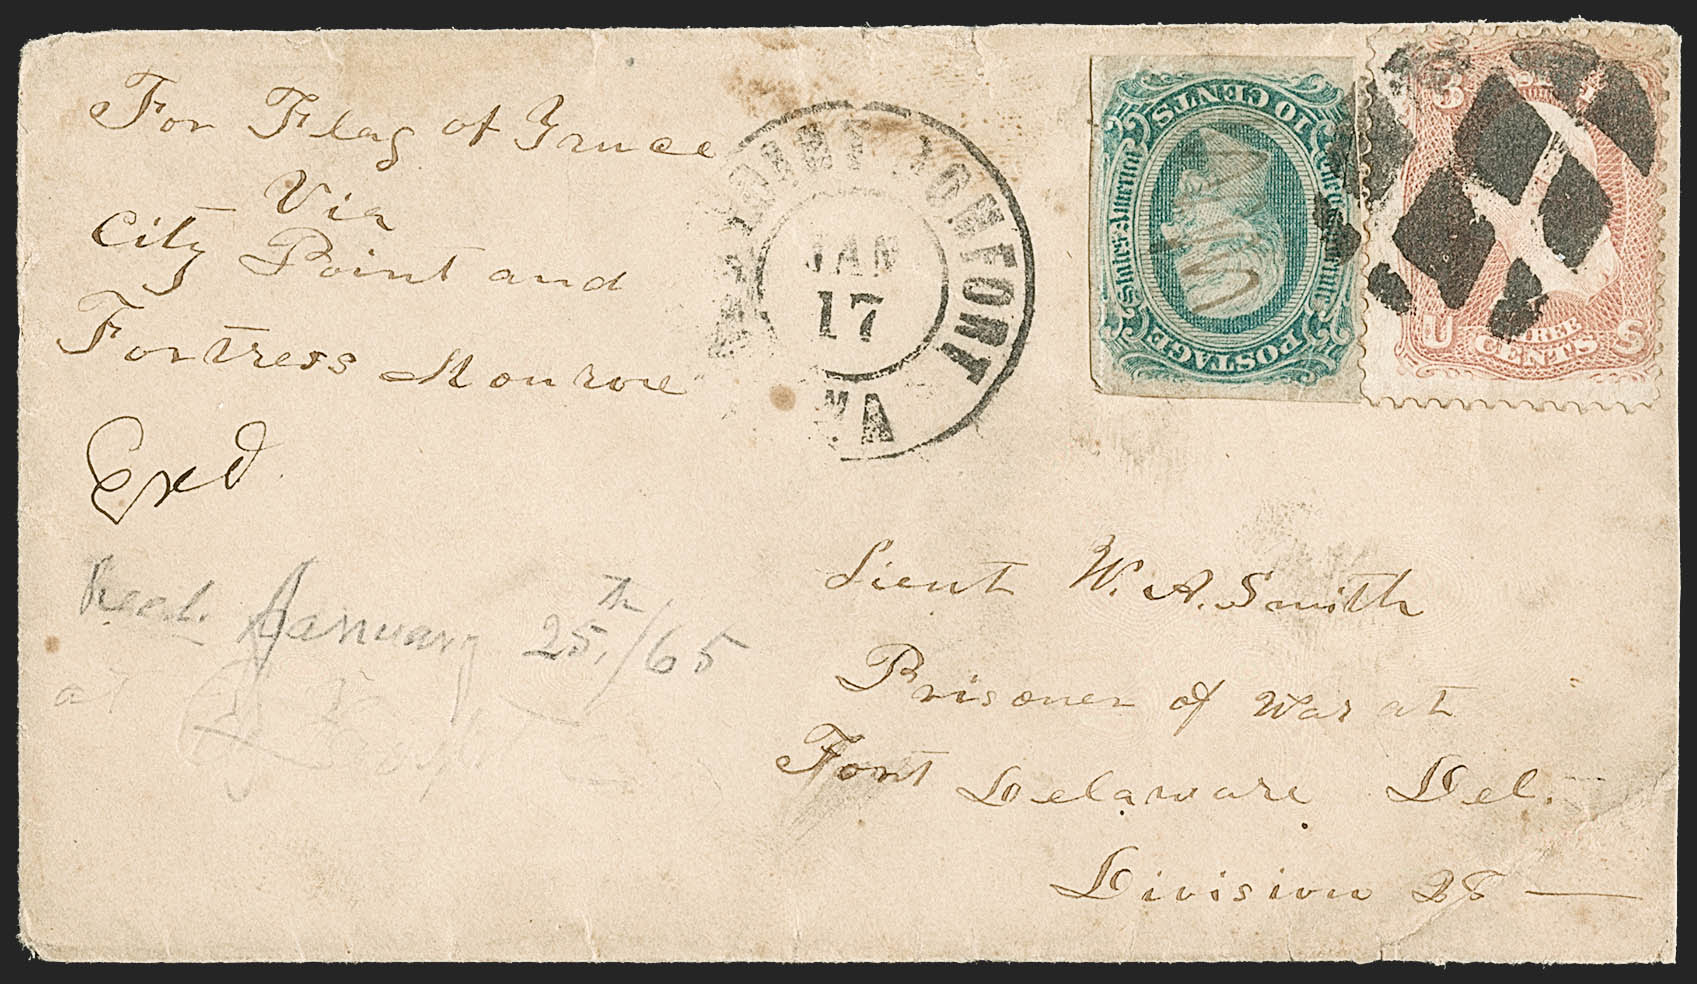 For Flag of Truce
Via
City Point and
Fortress Monroe
Exd
Recd. January 25th/65
at
POINT COMFORT
JAN
17
VA
10 CENTS
POSTAGE
States of America
3
U S
THREE
CENTS
Lieut W. A. Smith
Prisoner of War at
Fort Delaware Del.
Division 28